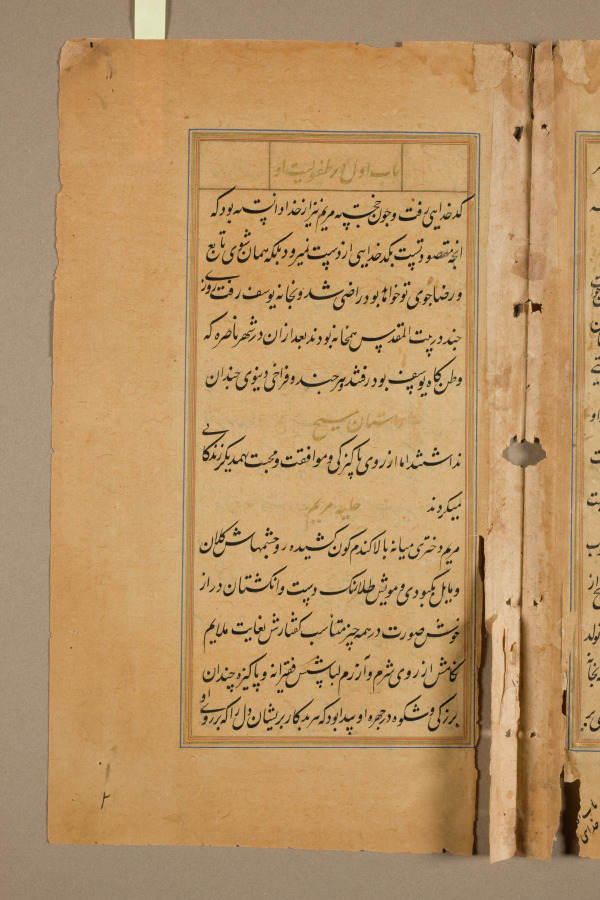 باب اول در طفولیت او
کدخدایی رفت و چون حجت پسه مریم نیز از خدا دانسته بود که
انچه مقصود تست بکدخدایی از دست نمیرود بلکه همان شوی تابع
و رضا جوی تو خواهد بود راضی شد و بخانه یوسف رفت روزی
چند در بیت المقدس همخانه بودند بعد ازان در شهر ناصره که
وطن گاه یوسف بود رفتند هر چند و فراخی دنیوی چندان
داستان مسیح
نداشتند اما از روی پاکیزگی و موافقت و محبت همدیگر زندگانی
میکردند
حلیه مریم
مریم دختری میانه بالا کندم کون کشیده رو چشمهاش کلان
و مایل بکبودی و مویش طلارنک دست و انکشتان دراز
خوش صورت در همه چیز متناسب کفتارش بغایت ملایم
نکاهش از روی شرم و آزرم لباسش فقیرانه و پاکیزه چندان
بزرکی و شکوه در چهره او پیدا بود که هر بدکار پریشان دل را که بر روی او
۲
باب